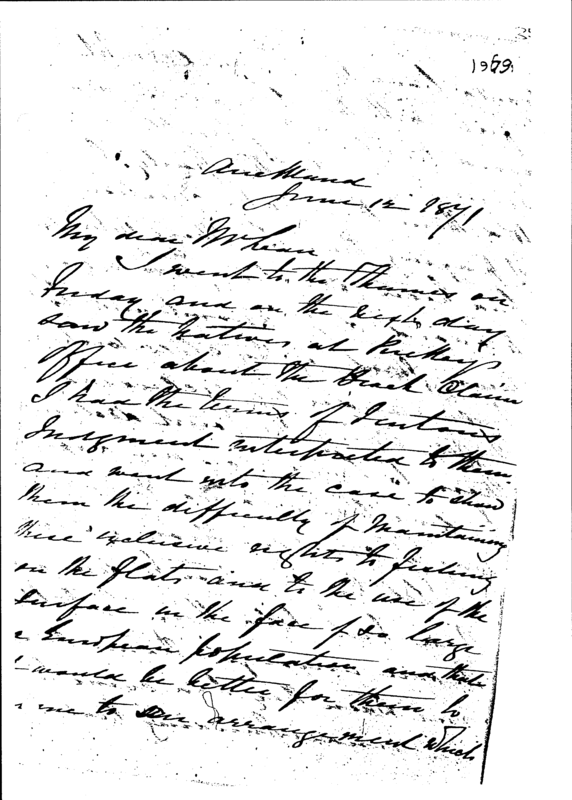 1959.
Auckland
June 12 1871
My dear McLean
I went to the Thames on
Friday and on the next day
saw the Natives at Puckeys
Office about the Beach Claim
I had the terms of Fentons
Judgment interpreted to them
and went into the case to show
them the difficulty of maintaining
their exclusive rights to fishing
on the flats and to the use of the
surface in the face of so large
a European population and that
would be better for them to
me to an arrangement which